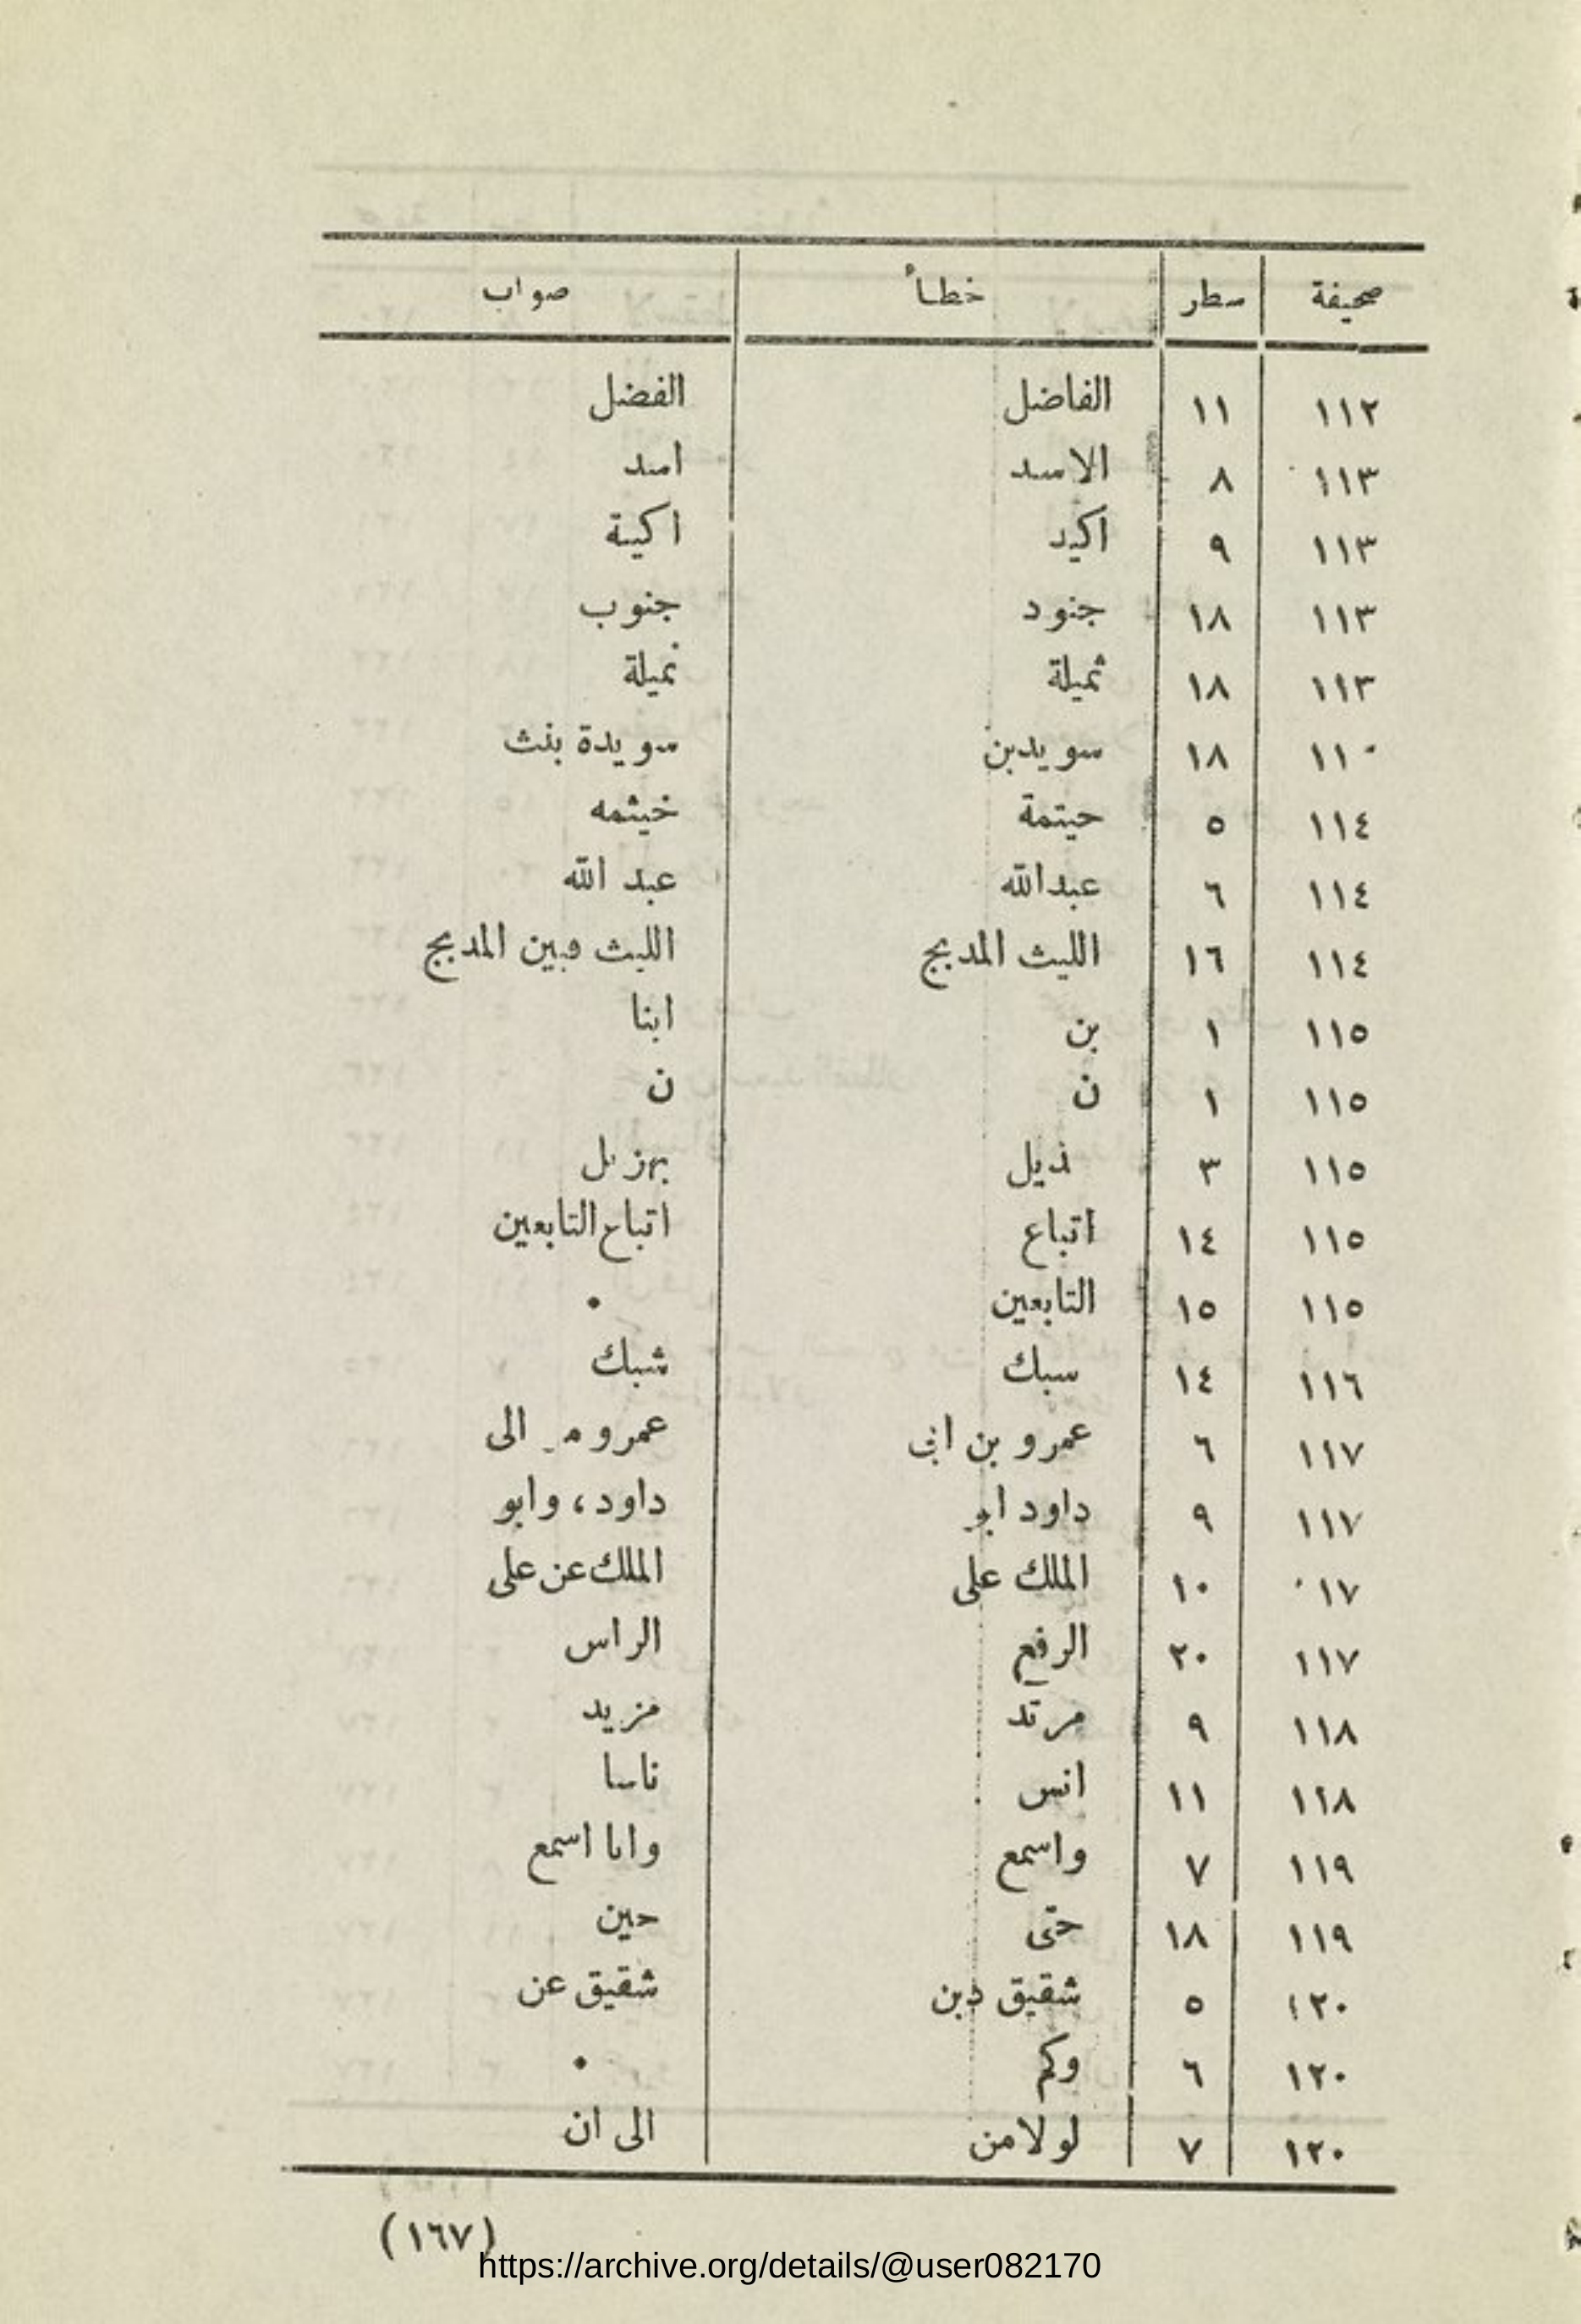 صحيفة سطر خطأ صواب
١١٢ ١١ الفاضل الفضل
١١٣ ٨ الاسد اسد
١١٣ ٩ اكيد اكيبة
١١٣ ١٨ جنود جنوب
١١٣ ١٨ ثميلة نميلة
١١ ١٨ سويدبن سويدة بنث
١١٤ ٥ حيتمة خيثمه
١١٤ ٦ عبدالله عبد الله
١١٤ ١٦ الليث المدبج الليث وبين المدبج
١١٥ ١ بن ابنا
١١٥ ١ ن ن
١١٥ ٣ ذيل
١١٥ ١٤ اتباع اتباع التابعين
١١٥ ١٥ التابعين •
١١٦ ١٤ سبك شبك
١١٧ ٦ عمرو بن ابى عمرو الى
١١٧ ٩ داود ابو داود، وابو
١٧ ١٠ الملك على الملك عن على
١١٧ ٢٠ الرفع الراس
١١٨ ٩ مرتد مزيد
١١٨ ١١ انس ناسا
١١٩ ٧ واسمع وانا اسمع
١١٩ ١٨ حتى حين
١٢٠ ٥ شقيق دبن شقيق عن
١٢٠ ٦ وكم •
١٢٠ ٧ لولامن الى ان
(١٦٧)
https://archive.org/details/@user082170